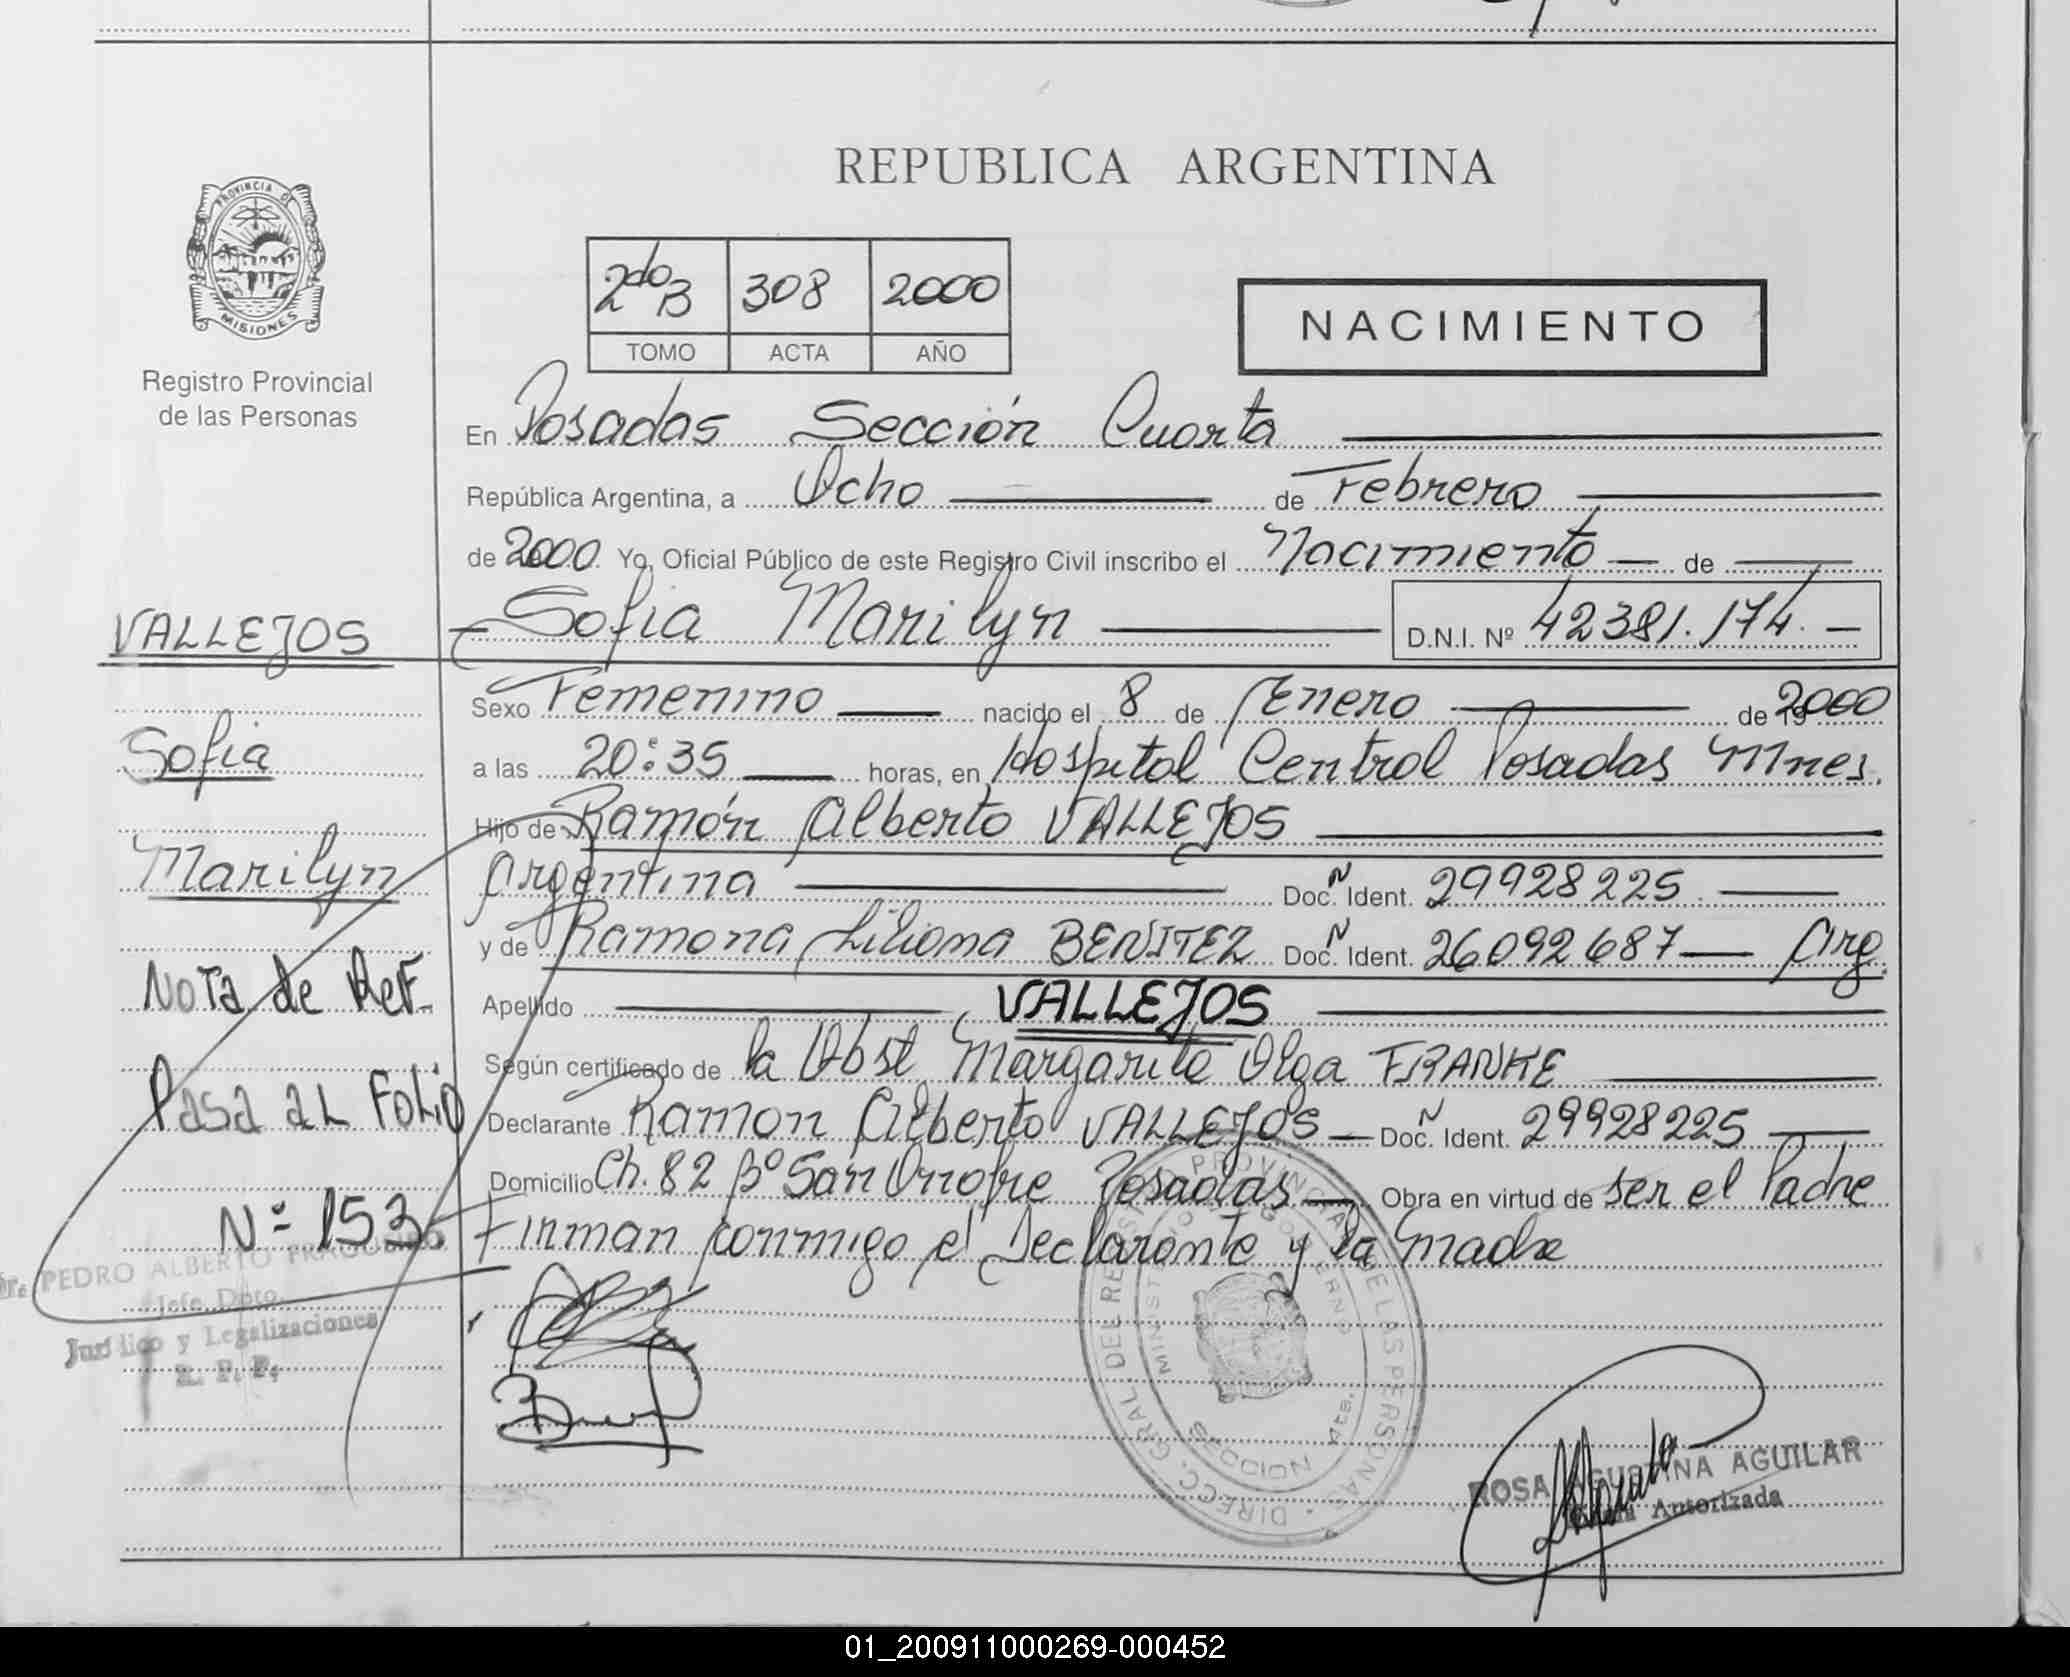 REPUBLICA ARGENTINA
PROVINCIA DE
MISIONES
Registro Provincial
de las Personas
2do B 308 2000
TOMO ACTA AÑO
NACIMIENTO
En Posadas Sección Cuarta
República Argentina, a Ocho de Febrero
de 2000 Yo, Oficial Público de este Registro Civil inscribo el Nacimiento de
Sofia Marilyn D.N.I. Nº 42381.174.
Sexo Femenino nacido el 8 de Enero de 2000
a las 20:35 horas, en Hospital Central Posadas Mnes.
Hijo de Ramón Alberto VALLEJOS
Argentina Doc. Ident. 29928225
y de Ramona Liliana BENITEZ Doc. Ident. 26092687 Arg.
Apellido VALLEJOS
Según certificado de la Obst Margarita Olga FRANKE
Declarante Ramon Alberto VALLEJOS Doc. Ident. 29928225
Domicilio Ch. 82 Bº San Onofre Posadas Obra en virtud de ser el Padre
Firman conmigo el Declarante y la Madre
VALLEJOS
Sofia
Marilyn
Nota de Ref.
Pasa al Folio
Nº 153
PEDRO ALBERTO
Jefe Dpto.
Jurídico y Legalizaciones
R. P. P.
DIRECC. GRAL. DEL REGISTRO PROVINCIAL DE LAS PERSONAS
MINISTERIO DE GOBIERNO
SECCION 4ta.
ROSA AGUSTINA AGUILAR
Firma Autorizada
01_200911000269-000452